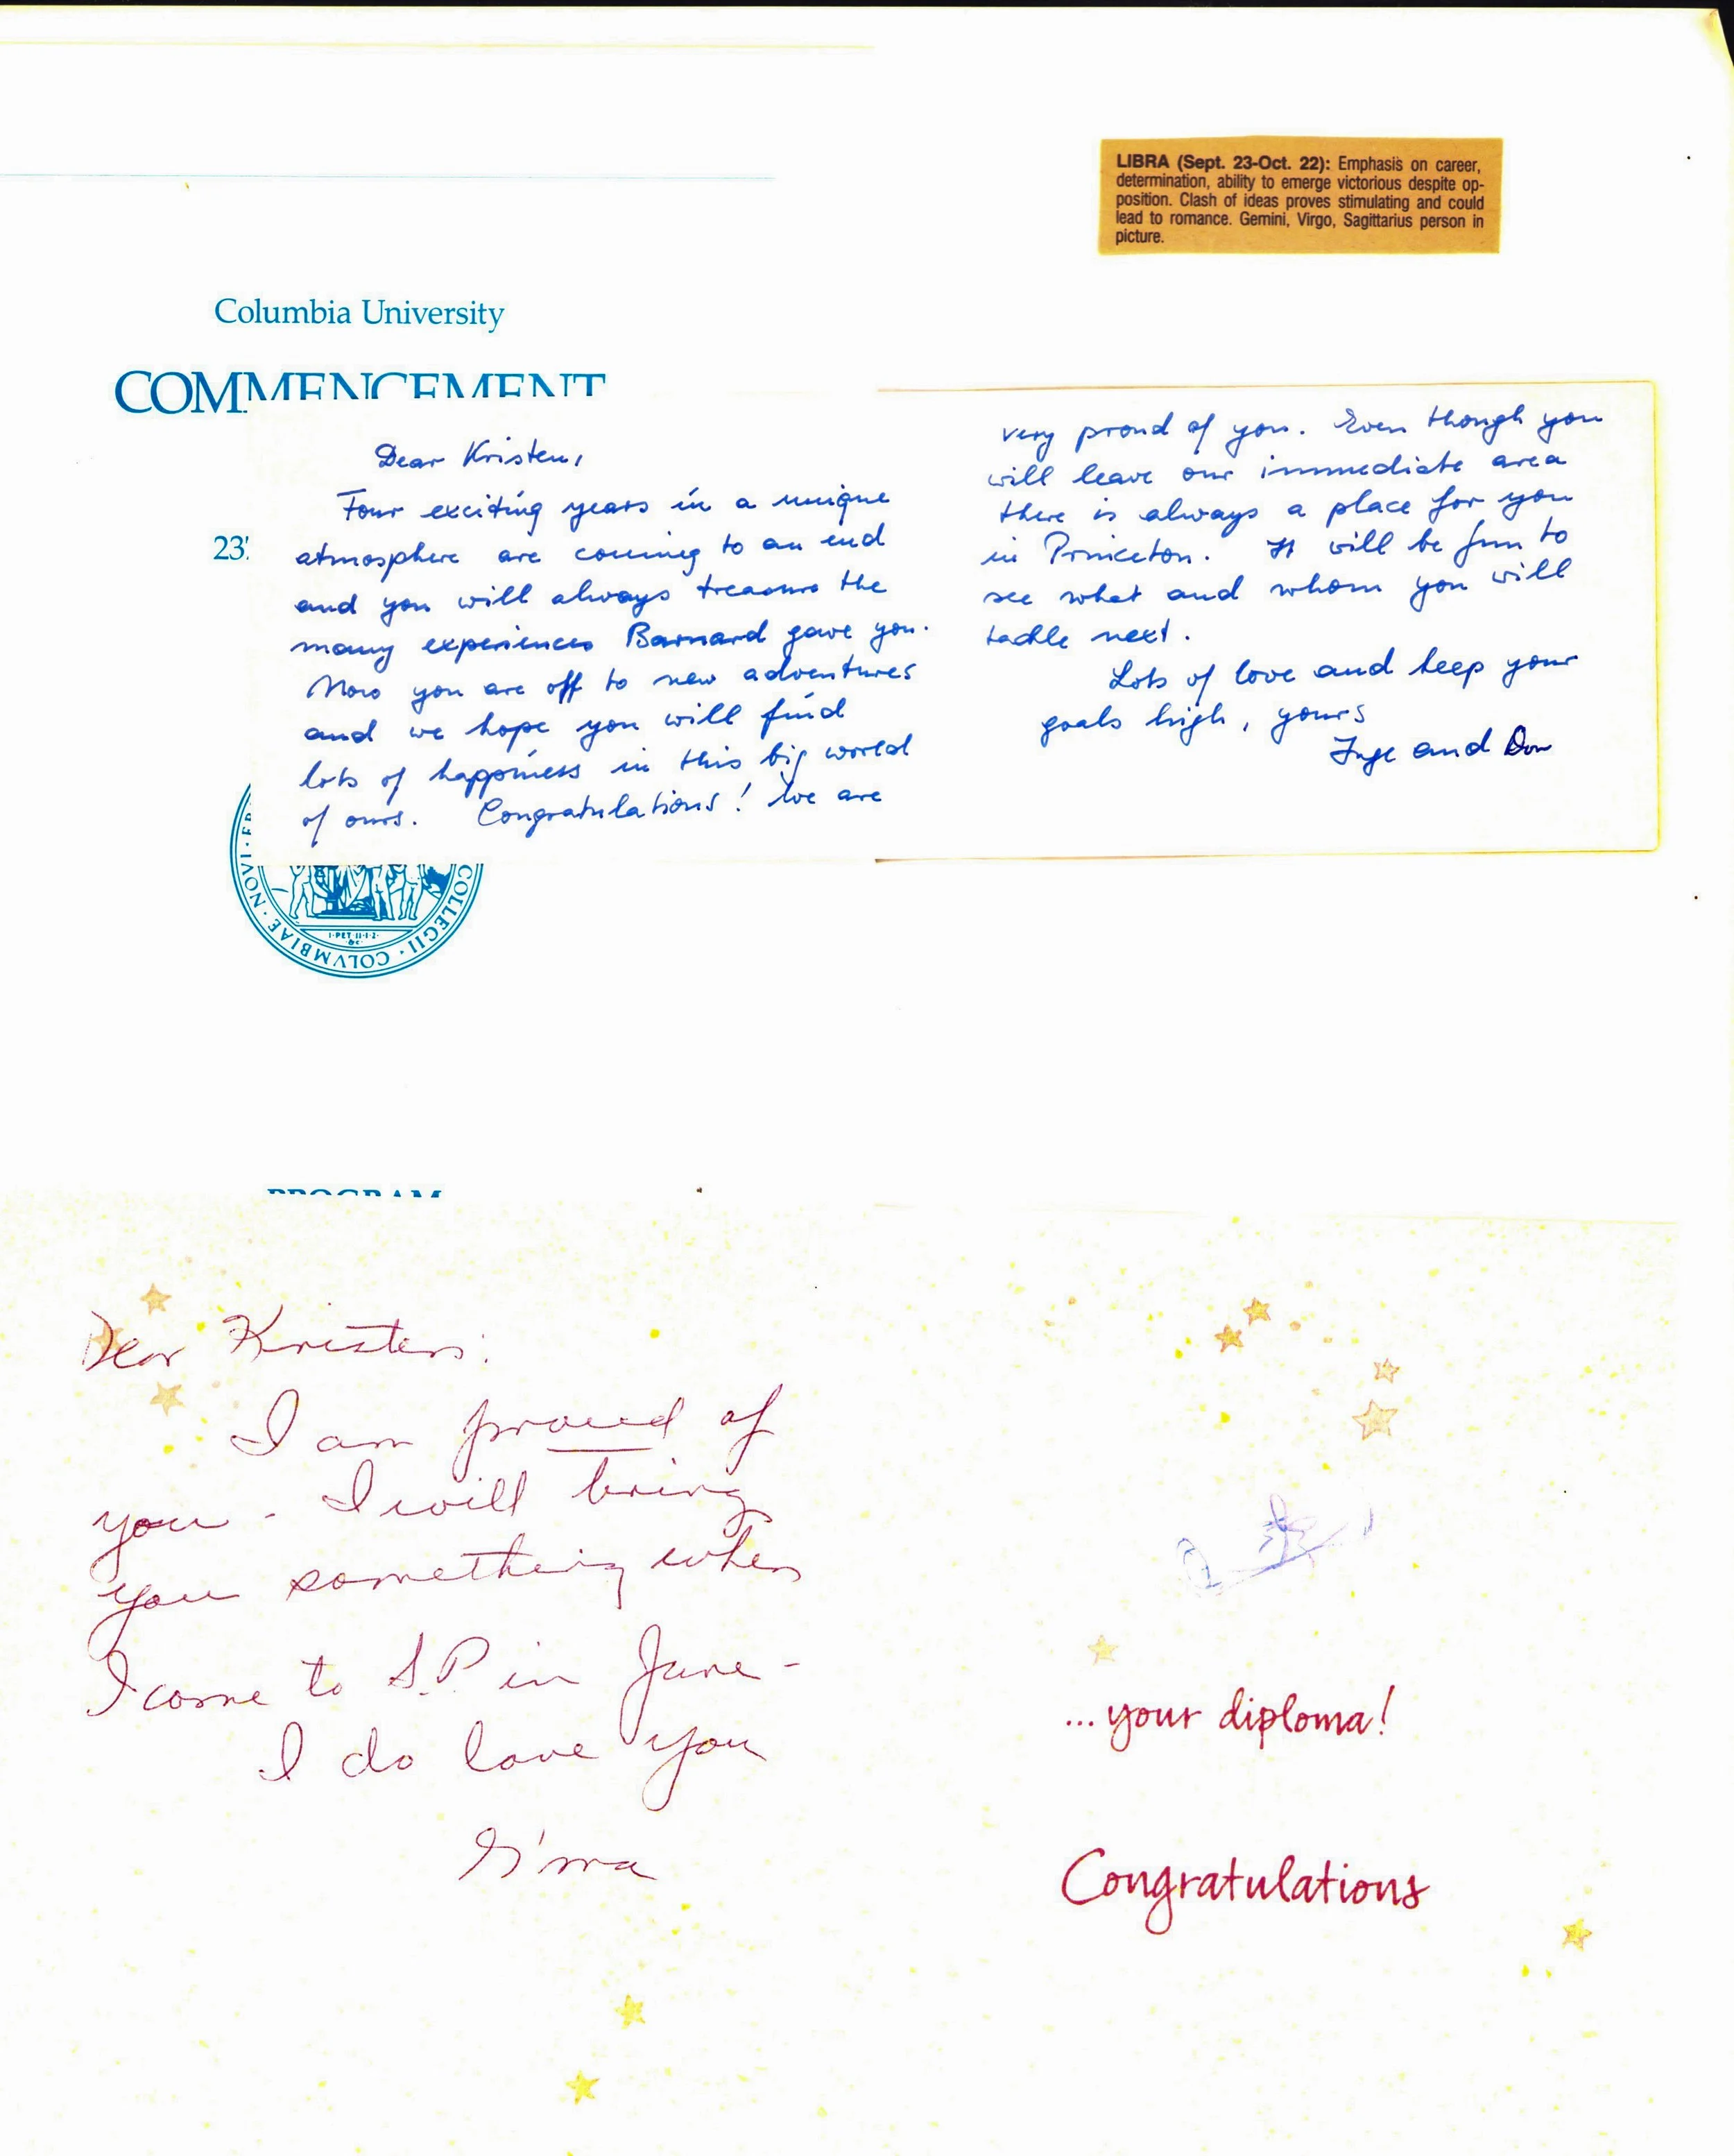 LIBRA (Sept. 23-Oct. 22): Emphasis on career,
determination, ability to emerge victorious despite op-
position. Clash of ideas proves stimulating and could
lead to romance. Gemini, Virgo, Sagittarius person in
picture.
Columbia University
COMMENCEMENT
23
Dear Kristen,
Four exciting years in a unique
atmosphere are coming to an end
and you will always treasure the
many experiences Barnard gave you.
Now you are off to new adventures
and we hope you will find
lots of happiness in this big world
of ours. Congratulations! We are
very proud of you. Even though you
will leave our immediate area
there is always a place for you
in Princeton. It will be fun to
see what and whom you will
tackle next.
Lots of love and keep your
goals high, yours
Inge and Don
COLLEGII · COLVMBIAE · NOVI ·
I·PET II·1·2·
&c·
PROGRAM
Dear Kristen:
I am proud of
you - I will bring
you something when
I come to S.P. in June -
I do love you
G'ma
...your diploma!
Congratulations